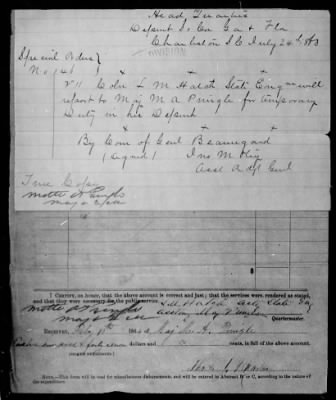 Head Quarters
Depmt So Ca Ga & Fla
Charleston S C July 24th 1863
DIVISION
Special Orders
No 141
VII Colr L M Hatch State Engr will
report to Maj M A Pringle for temporary
Duty in his Depmt
By Com of Genl Beauregard
(Signed) Jno M Otey
Asst Adjt Genl
True Copy
Motte A Pringle
Maj & QM
I CERTIFY, on honor, that the above account is correct and just; that the services were rendered as stated,
and that they were necessary for the public service.
Motte A Pringle
Maj & QM
Quartermaster.
RECEIVED, 186
Maj Motte A Pringle
dollars and cents, in full of the above account.
(SIGNED DUPLICATES.)
NOTE.—This form will be used for miscellaneous disbursements, and will be entered in Abstract B or C, according to the nature of
the expenditure.